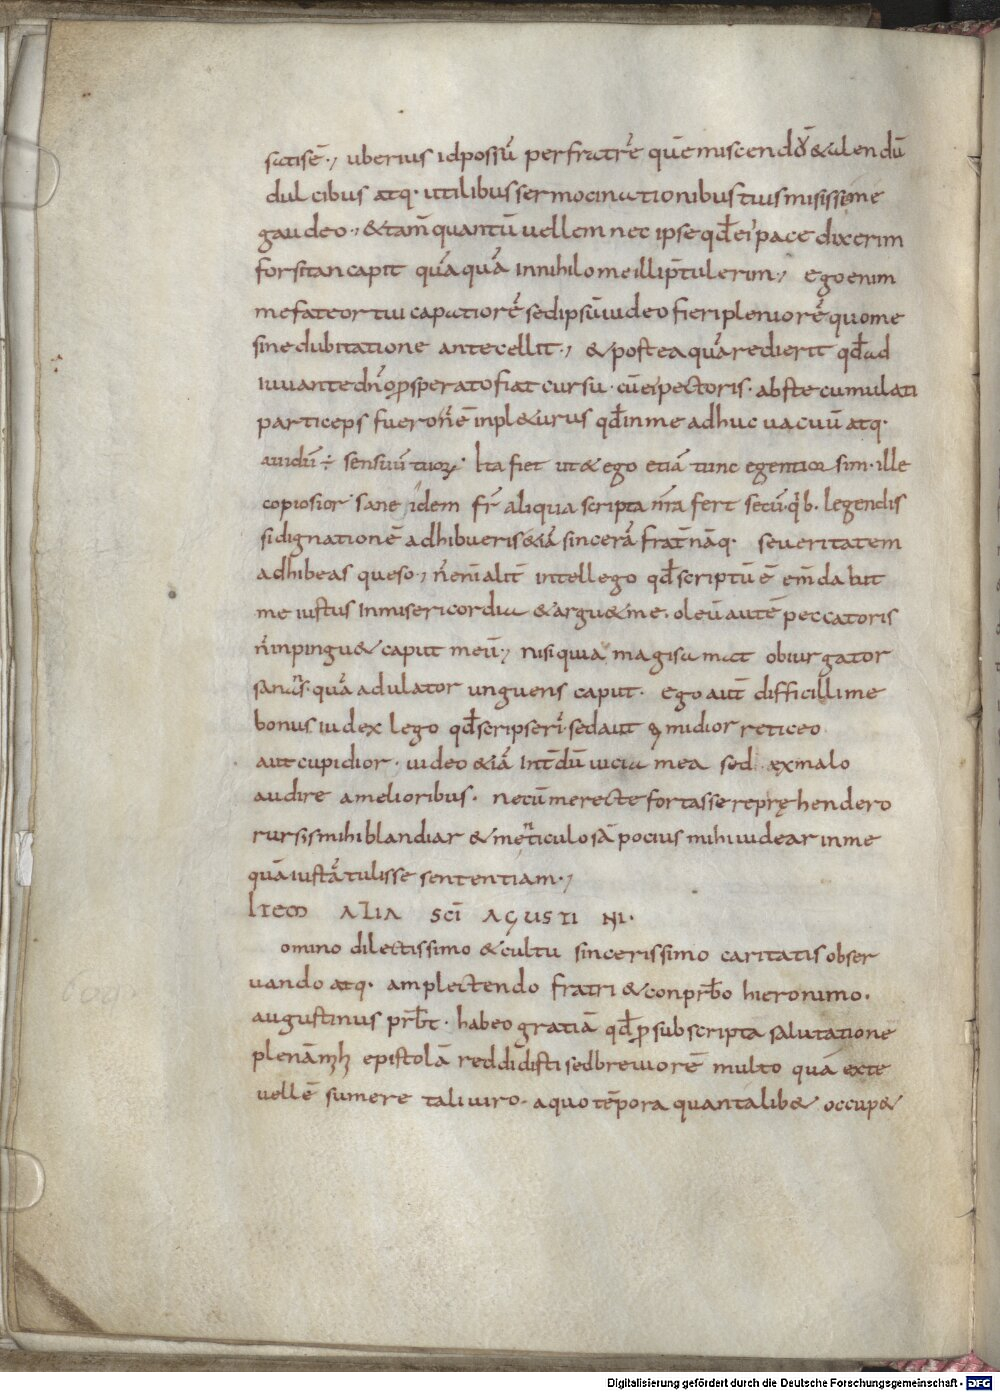 satisē·, uberius id possū per fratrē quē miscendo & alendū
dulcibus atq· utilibus sermocinationibus tuis misisse me
gaudeo·, & tam̄ quantū uellem nec ipse qđ ei pace dixerim
forsitan capit quāquā in nihilo me illi p̄tulerim·, Ego enim
me fateor tui capatiorē sed ipsū uideo fieri pleniorē quo me
sine dubitatione antecellit·, & postea quā redierit qđ ad
iuuante dn̄o ꝓspera to fiat cursu· cū ei pectoris· abs te cumulati
particeps fuero n̄ ē inpl&urus qđ in me adhuc uacuū atq·
auidū ÷ sensuū tuoꝝ· Ita fiet ut & ego etiā tunc egentior sim· ille
copiosior sane idem fr̄ aliqua scripta nr̄a fert secū· qb· legendis
si dignationē adhibueris &iā sincerā frat̄nāq· seueritatem
adhibeas queso·, n̄ enī alit̄ intellego qđ scriptū ē em̄dabit
me iustus in misericordia & argu& me· oleū autē peccatoris
n̄ inpingu& caput meū·, nisi quia magis amat obiurgator
sanans· quā adulator unguens caput· Ego aut̄ difficillime
bonus iudex lego qđ scripserī· sed aut midior reticeo·
aut cupidior· uideo &iā int̄dū uicia mea sed ęx malo
audire a melioribus· ne cū me recte fortasse repręhendero
rursis mihi blandiar & meticulosā pocius mihi uidear in me
quā iustā tulisse sententiam·,
ITEM ALIA SCĪ AGUSTINI·
omino dilectissimo & cultu sincerissimo caritatis obser
uando atq· amplectendo fratri & conpr̄bo hieronimo·
augustinus pr̄bt· habeo gratiā qđ ꝓ subscripta salutatione
plenā epistolā reddidisti sed breuiorē multo quā ex te
uellē sumere tali uiro· a quo tēpora quantalib& occup&
Digitalisierung gefördert durch die Deutsche Forschungsgemeinschaft - DFG